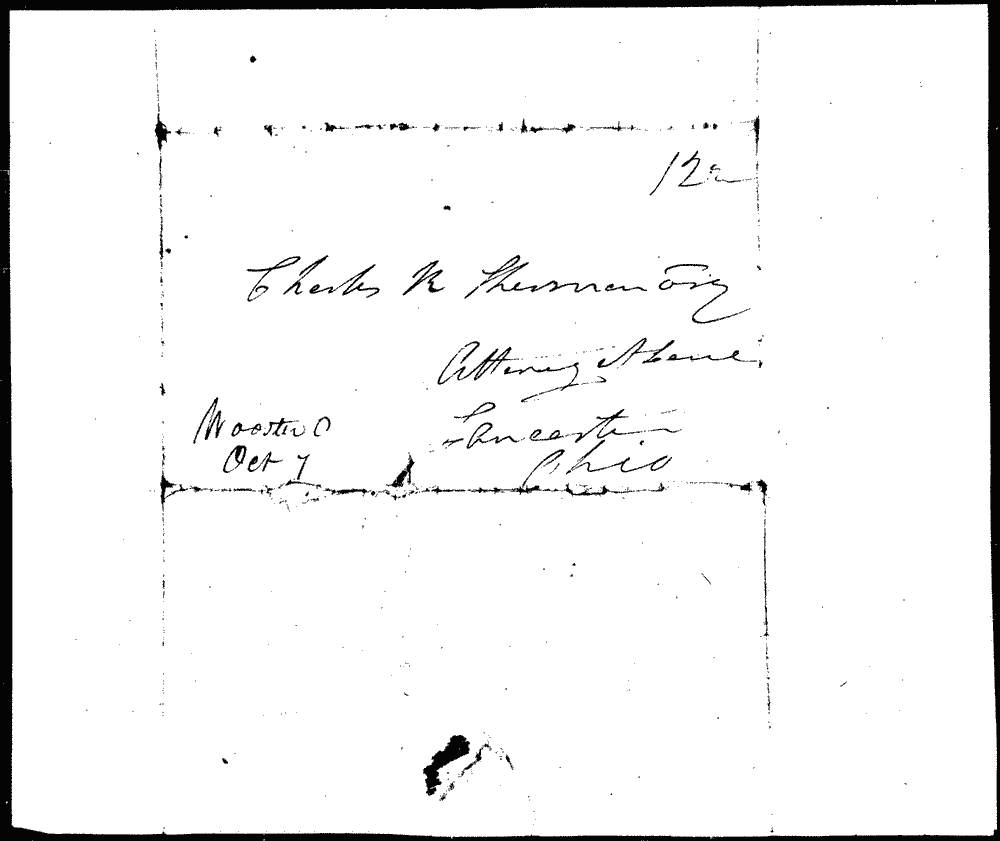 12½
Charles R Sherman Esq
Attorney at Law
Lancaster
Ohio
Wooster O
Oct 7